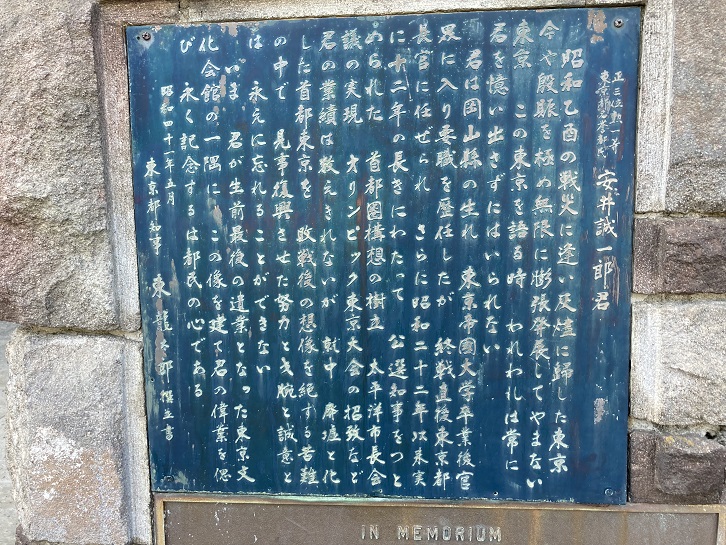 正三位勲一等
東京都名誉都民
安井誠一郎君
昭和乙酉の戦火に逢い灰燼に歸した東京
今や殷賑を極め無限に膨張發展してやまない
東京 この東京を語る時 われわれは常に
君を憶い出さずにはいられない
君は岡山縣の生れ 東京帝國大学卒業後官
界に入り要職を歴任したが 終戦直後東京都
長官に任ぜられ さらに昭和二十二年以来実
に十二年の長きにわたって 公選知事をつと
められた 首都圏構想の樹立 太平洋市長会
議の実現 オリンピック東京大会の招致など
君の業績は数えきれないが 就中 廃墟と化
した首都東京を 敗戦後の想像を絶する苦難
の中で 見事復興させた努力と手腕と誠意と
は 永えに忘れることができない
いま 君が生前最後の遺業となった東京文
化会館の一隅に この像を建て君の偉業を偲
び 永く記念するは都民の心である
昭和四十一年五月
東京都知事 東 龍太郎 撰並書
IN MEMORIUM